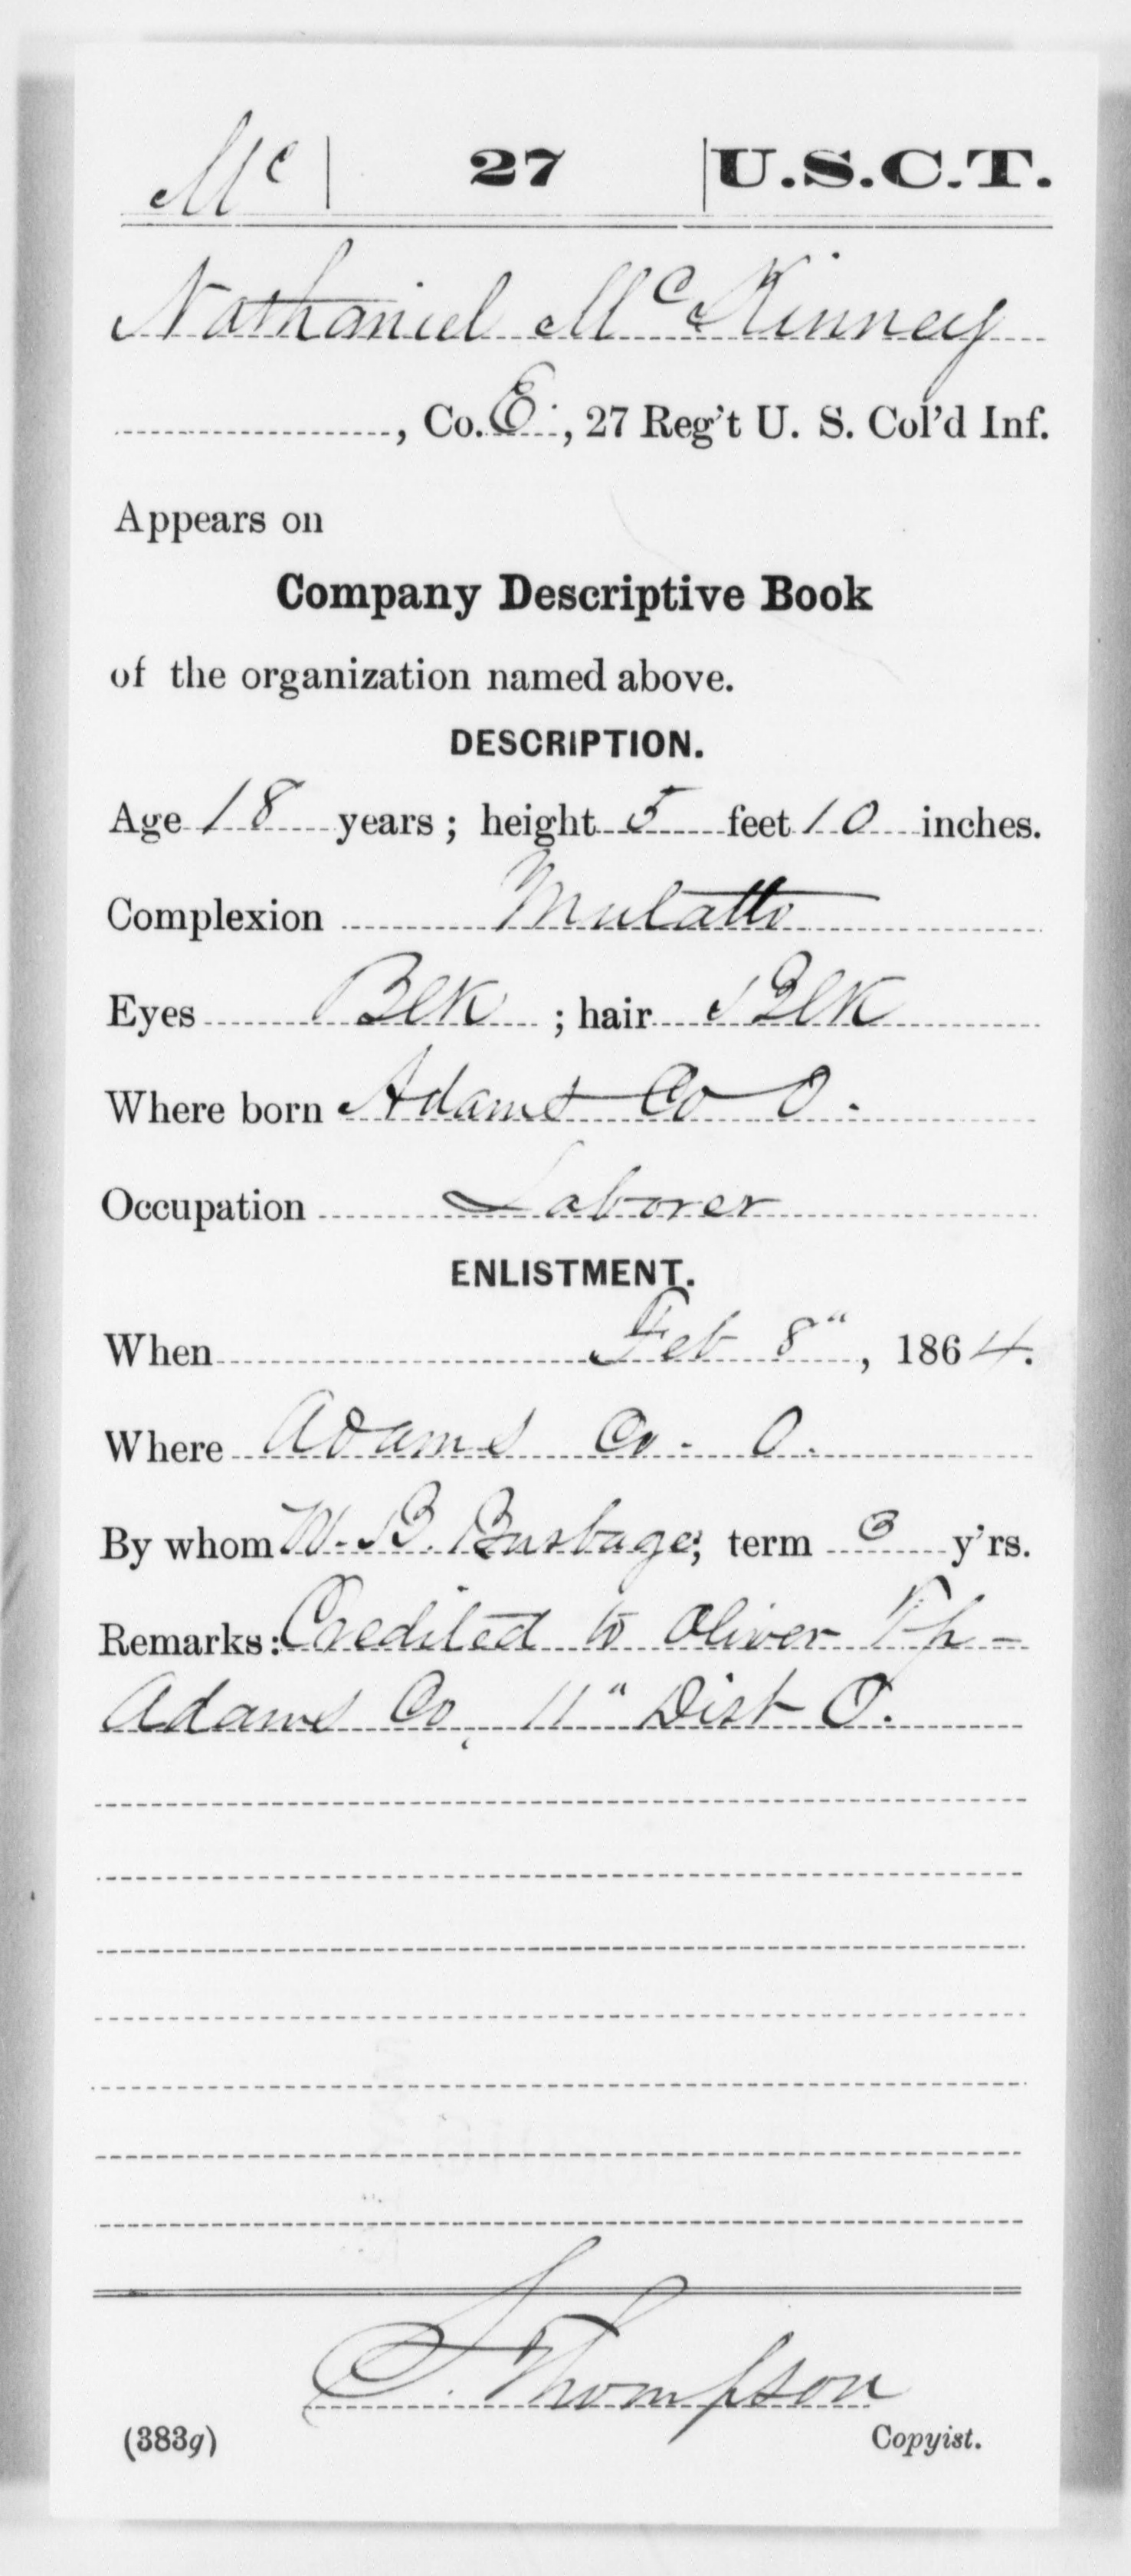 Mc | 27 | U.S.C.T.
Nathaniel McKinney
, Co. E., 27 Reg't U. S. Col'd Inf.
Appears on
Company Descriptive Book
of the organization named above.
DESCRIPTION.
Age 18 years; height 5 feet 10 inches.
Complexion Mulatto
Eyes Blk ; hair Blk
Where born Adams Co O.
Occupation Laborer
ENLISTMENT.
When Feb 8", 1864.
Where Adams Co. O.
By whom W. B. Burbage; term 3 y'rs.
Remarks: Credited to Oliver Tp -
Adams Co, 11" Dist O.
S. Thompson
(383g) Copyist.